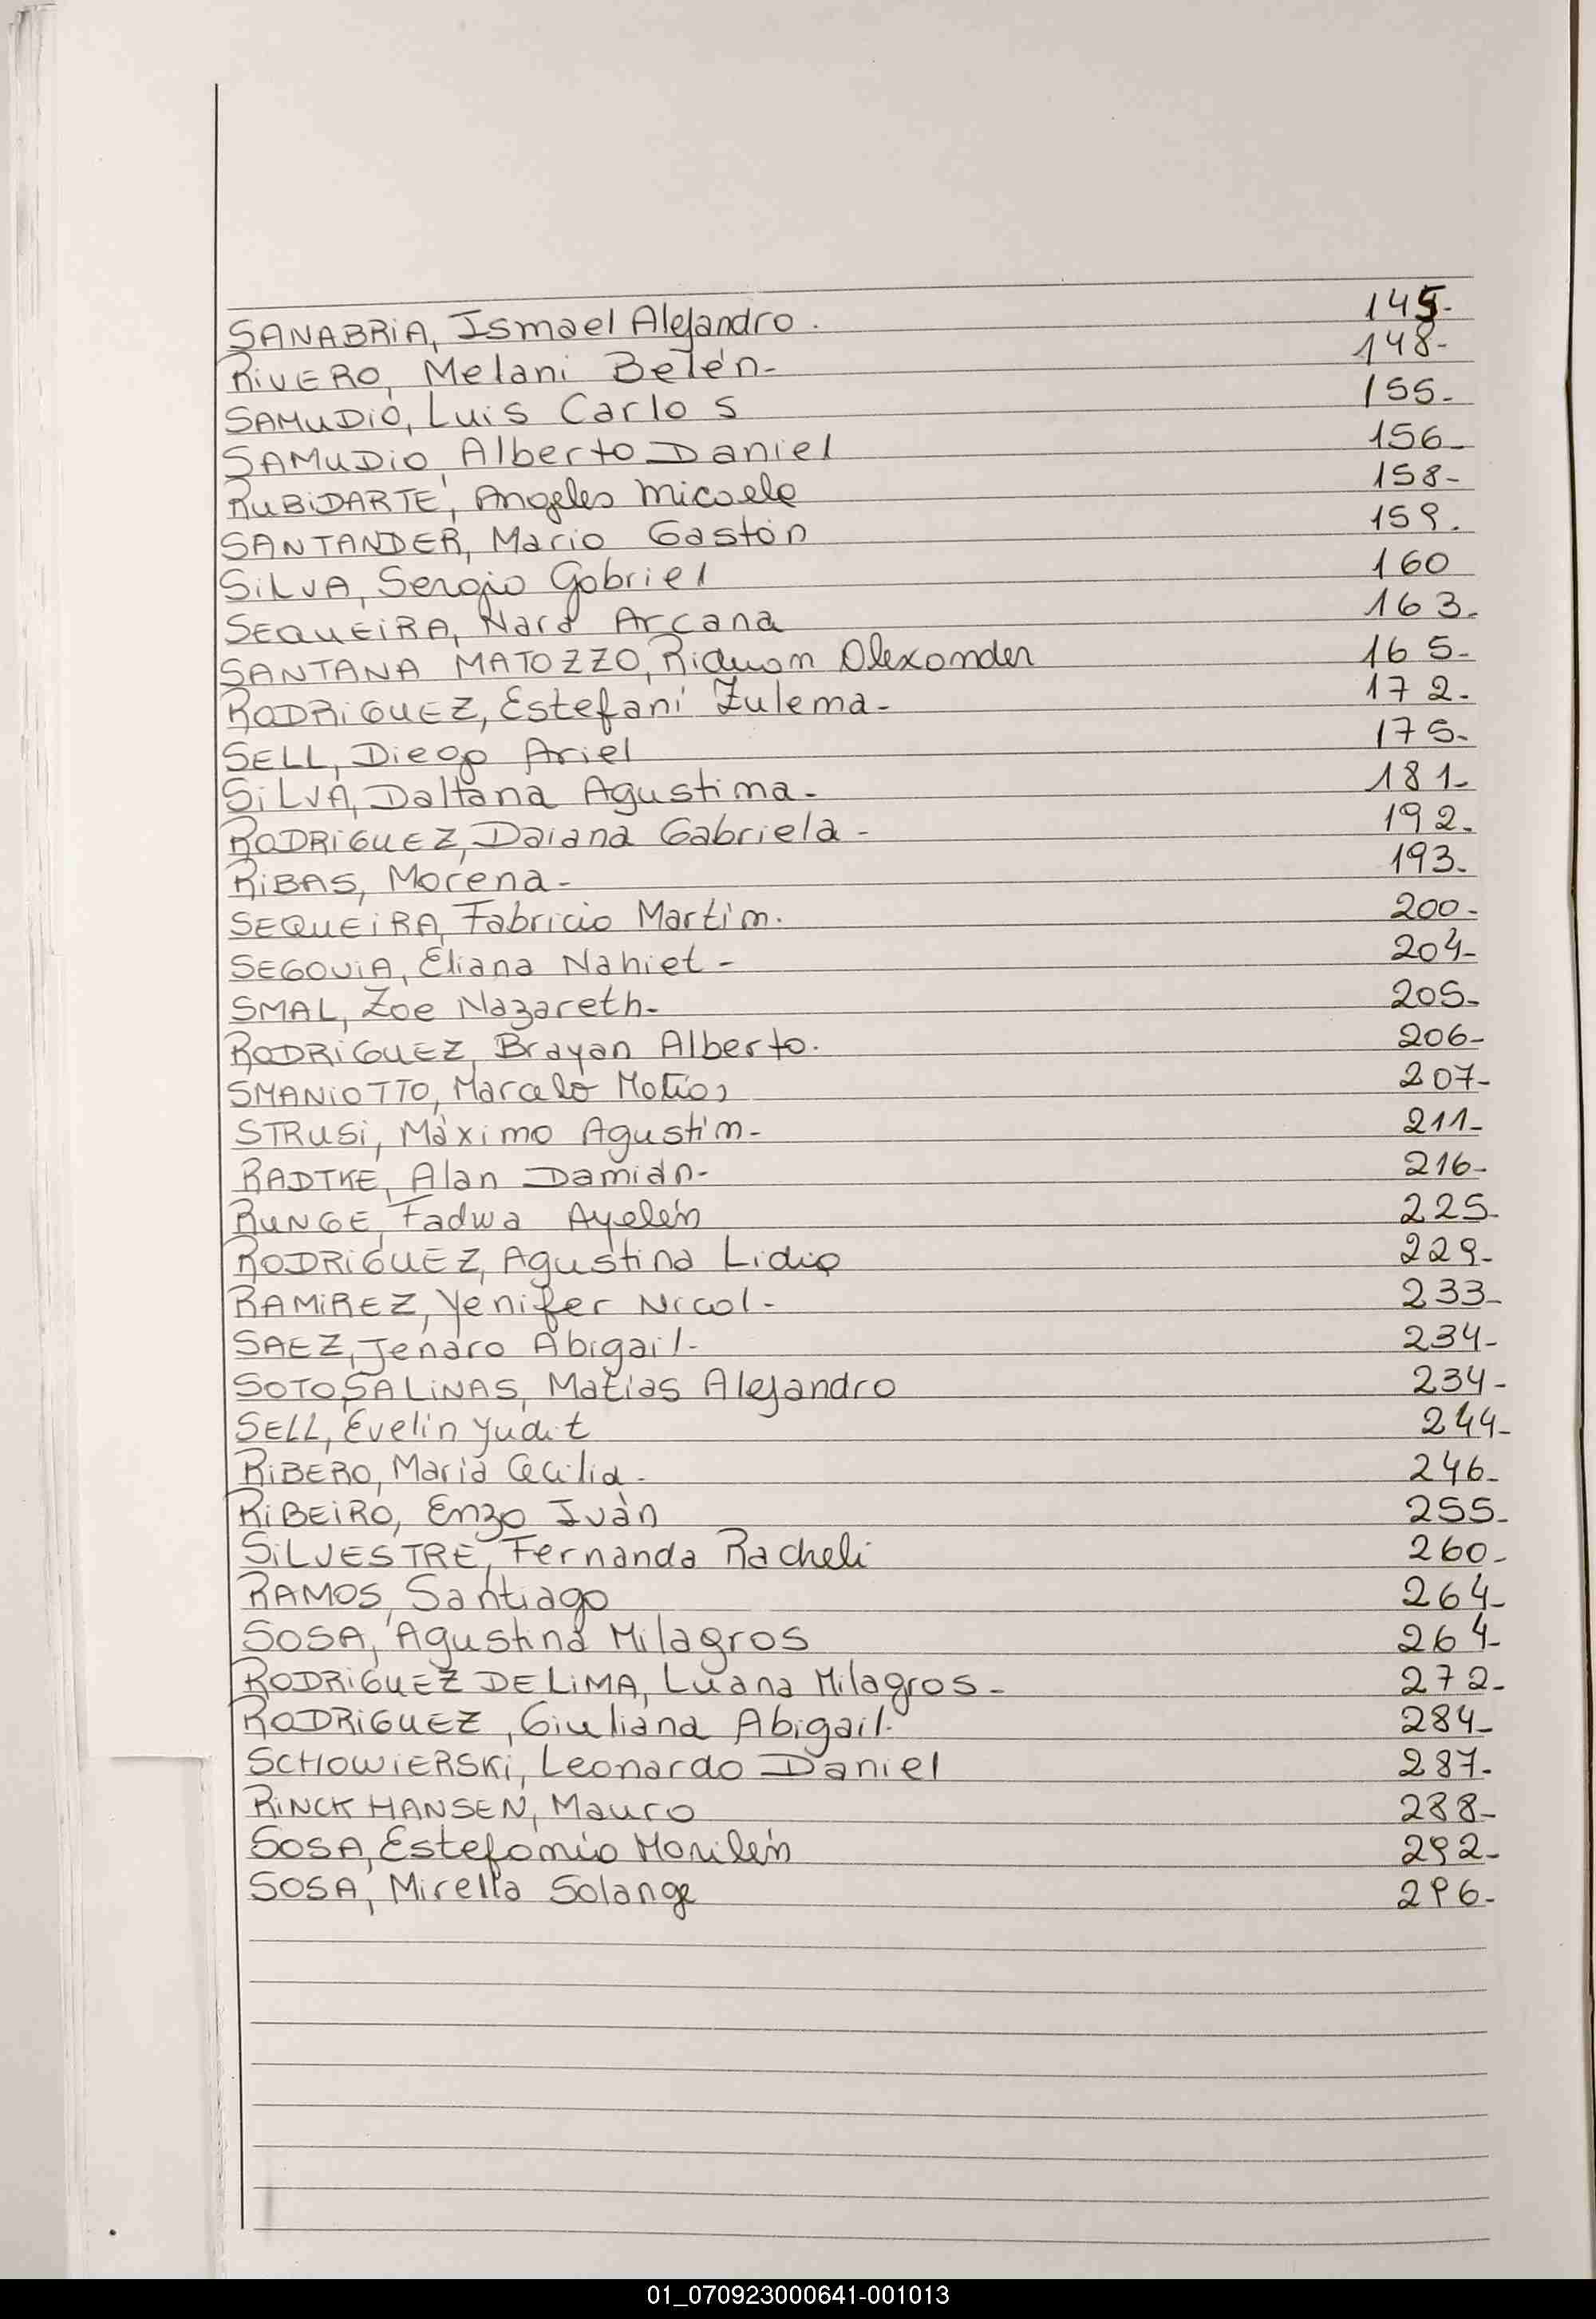 SANABRIA, Ismael Alejandro. 145-
RIVERO, Melani Belén- 148-
SAMUDIO, Luis Carlos 155-
SAMUDIO, Alberto Daniel 156-
RUBIDARTE, Angeles Micaela 158-
SANTANDER, Mario Gastón 159.
SILVA, Sergio Gabriel 160
SEQUEIRA, Nara Arcana 163.
SANTANA MATOZZO, Alexander 165-
RODRIGUEZ, Estefani Zulema- 172-
SELL, Diego Ariel 175-
SILVA, Daltana Agustina- 181-
RODRIGUEZ, Daiana Gabriela- 192.
RIBAS, Morena- 193.
SEQUEIRA, Fabricio Martin. 200-
SEGOVIA, Eliana Nahiet- 204-
SMAL, Zoe Nazareth- 205-
RODRIGUEZ, Brayan Alberto. 206-
SMANIOTTO, Marcelo Matías 207-
STRUSI, Máximo Agustín- 211-
RADTKE, Alan Damián- 216-
RUNGE, Fadwa Ayelén 225-
RODRIGUEZ, Agustina Lidia 229-
RAMIREZ, Yenifer Nicol- 233-
SAEZ, Jenaro Abigail- 234-
SOTO SALINAS, Matías Alejandro 234-
SELL, Evelin Yudit 244-
RIBERO, María Cecilia- 246-
RIBEIRO, Enzo Iván 255-
SILVESTRE, Fernanda Racheli 260-
RAMOS, Santiago 264-
SOSA, Agustina Milagros 264-
RODRIGUEZ DE LIMA, Luana Milagros- 272-
RODRIGUEZ, Giuliana Abigail- 284-
SCHOWIERSKI, Leonardo Daniel 287-
RINCK HANSEN, Mauro 288-
SOSA, Estefanía Marilén 292-
SOSA, Mirella Solange 296-
01_070923000641-001013